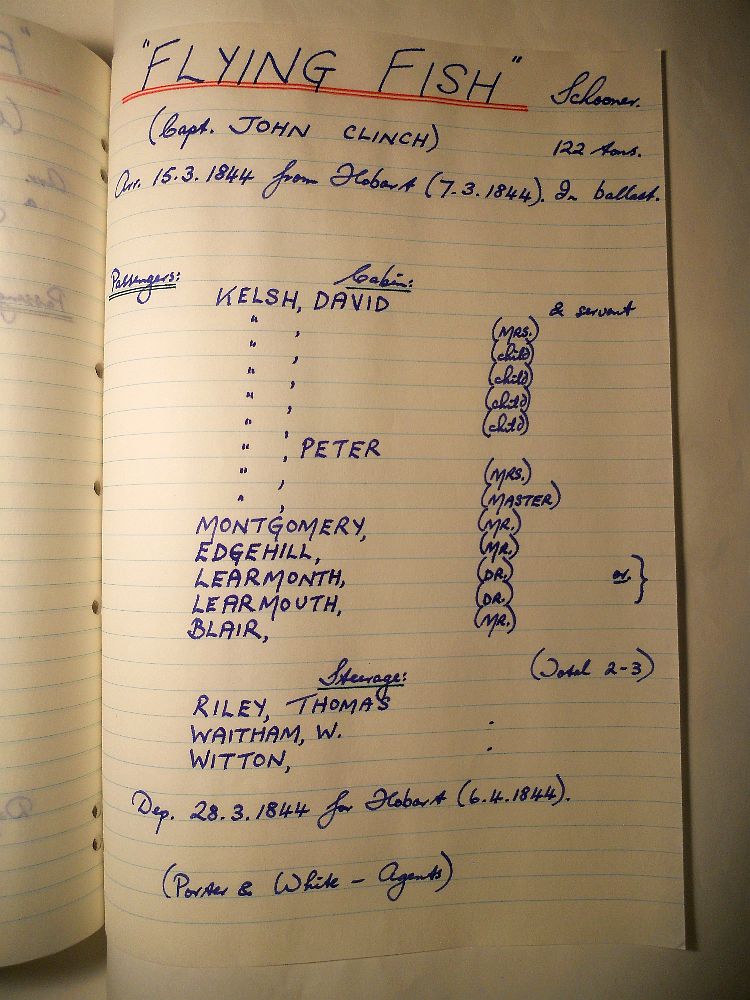 "FLYING FISH" Schooner.
(Capt. JOHN CLINCH) 122 tons.
Arr. 15.3.1844 from Hobart (7.3.1844). In ballast.
Passengers: Cabin:
KELSH, DAVID & servant
" , (MRS.)
" , (child)
" , (child)
" , (child)
" , (child)
" , PETER
" , (MRS.)
" , (MASTER)
MONTGOMERY, (MR.)
EDGEHILL, (MR.)
LEARMONTH, (DR.) or }
LEARMOUTH, (DR.)
BLAIR, (MR.)
Steerage: (Total 2-3)
RILEY, THOMAS
WAITHAM, W. :
WITTON, :
Dep. 28.3.1844 for Hobart (6.4.1844).
(Porter & White - Agents)